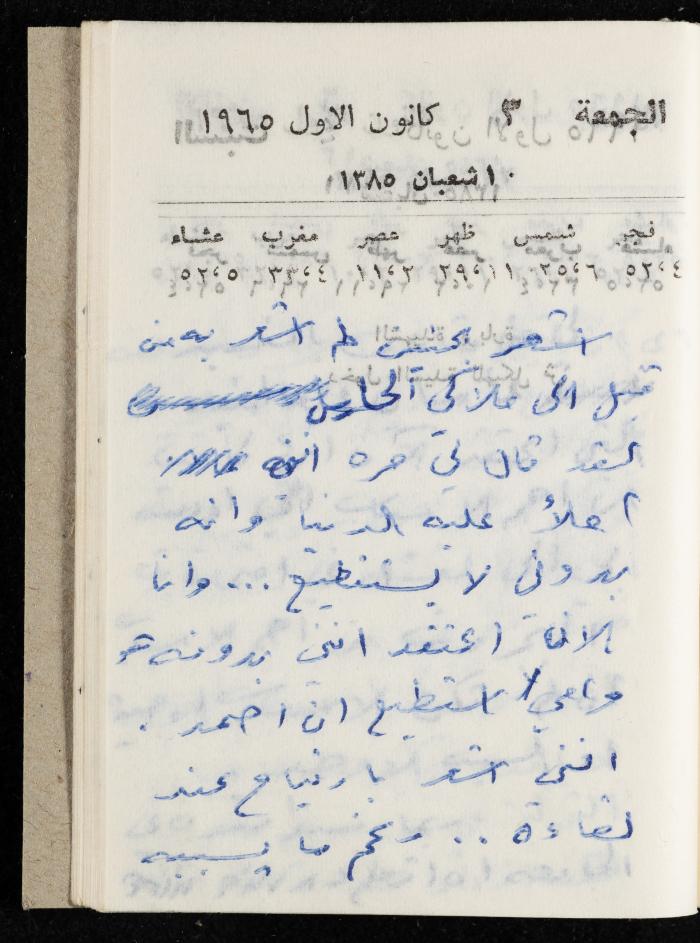 الجمعة ٣ كانون الاول ١٩٦٥
١٠ شعبان ١٣٨٥
فجر شمس ظهر عصر مغرب عشاء
٥٢،٤ ٢٥،٦ ٢٩،١١ ١١،٢ ٣٣،٤ ٥٢،٥
اشعر بحنين لم اشعر به من
قبل الى ملاكي الحارس
لقد قال لي مره انني
املأ عليه الدنيا وانه
بدوني لا يستطيع ... وانا
الان اعتقد انني بدونه هو
لا استطيع ان اصمد .
انني اشعر بارتياح عند
لقاءه .. رغم ما يسببه